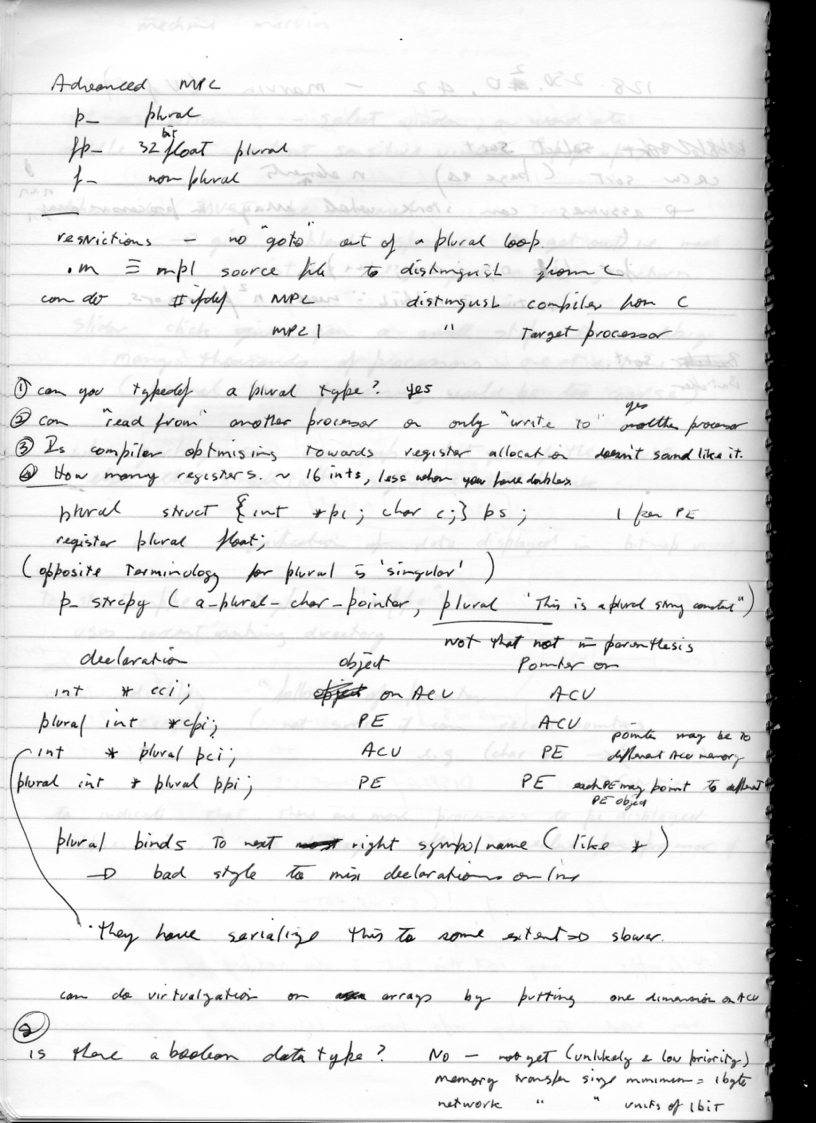 Advanced MPL
p_ plural
fp_ 32 bit float plural
f_ non plural
restrictions – no "goto" out of a plural loop.
.m ≡ mpl source file to distinguish from C
can do #ifdef MPL distingush compiler from C
MPL1 " Target processor
① can you typedef a plural type? yes
② can "read from" another processor or only "write to" another processor yes
③ Is compiler optimising towards register allocation doesn't sound like it.
④ How many registers. ~ 16 ints, less when you have doubles
plural struct {int *pi; char c;} ps; 1 per PE
register plural float;
(opposite terminology for plural is 'singular')
p_strcpy (a_plural_char_pointer, plural "This is a plural string constant")
not that not in parenthesis
declaration object Pointer on
int * cci; on ACU ACU
plural int *cpi; PE ACU
int * plural pci; ACU PE pointer may be to different ACU memory
plural int * plural ppi; PE PE each PE may point to different PE object
plural binds to next right symbol name (like *)
→ bad style to mix declarations on line
they have serialize this to some extent ⇒ slower.
can do virtualization on arrays by putting one dimension on ACU
②
is there a boolean data type? No – not yet (unlikely & low priority)
memory transfer size minimum = 1 byte
network " " units of 1 bit